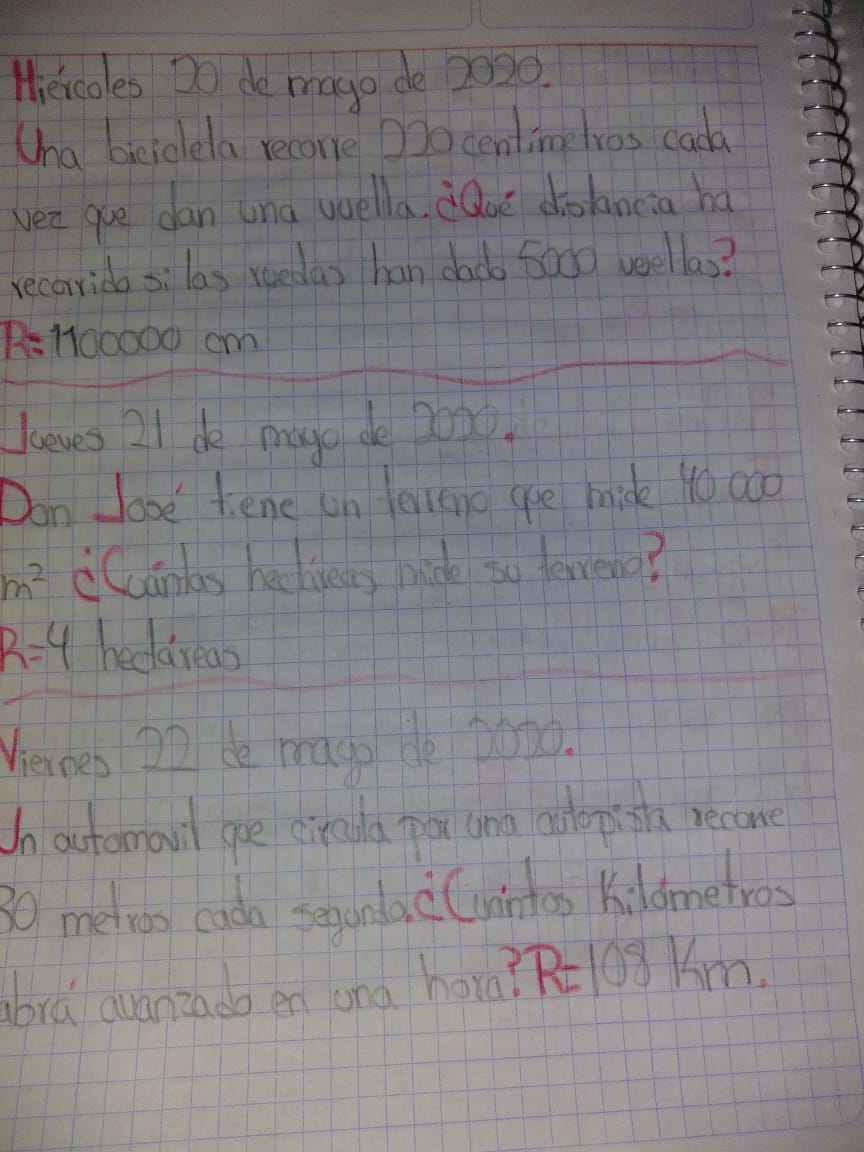 Miércoles 20 de mayo de 2020.
Una bicicleta recorre 220 centímetros cada
vez que dan una vuelta. ¿Qué distancia ha
recorrido si las ruedas han dado 5000 vueltas?
R=1100000 cm
Jueves 21 de mayo de 2020.
Don José tiene un terreno que mide 40 000
m² ¿Cuántas hectáreas mide su terreno?
R=4 hectáreas
Viernes 22 de mayo de 2020.
Un automovil que circula por una autopista recorre
30 metros cada segundo. ¿Cuántos Kilómetros
abrá avanzado en una hora? R=108 Km.